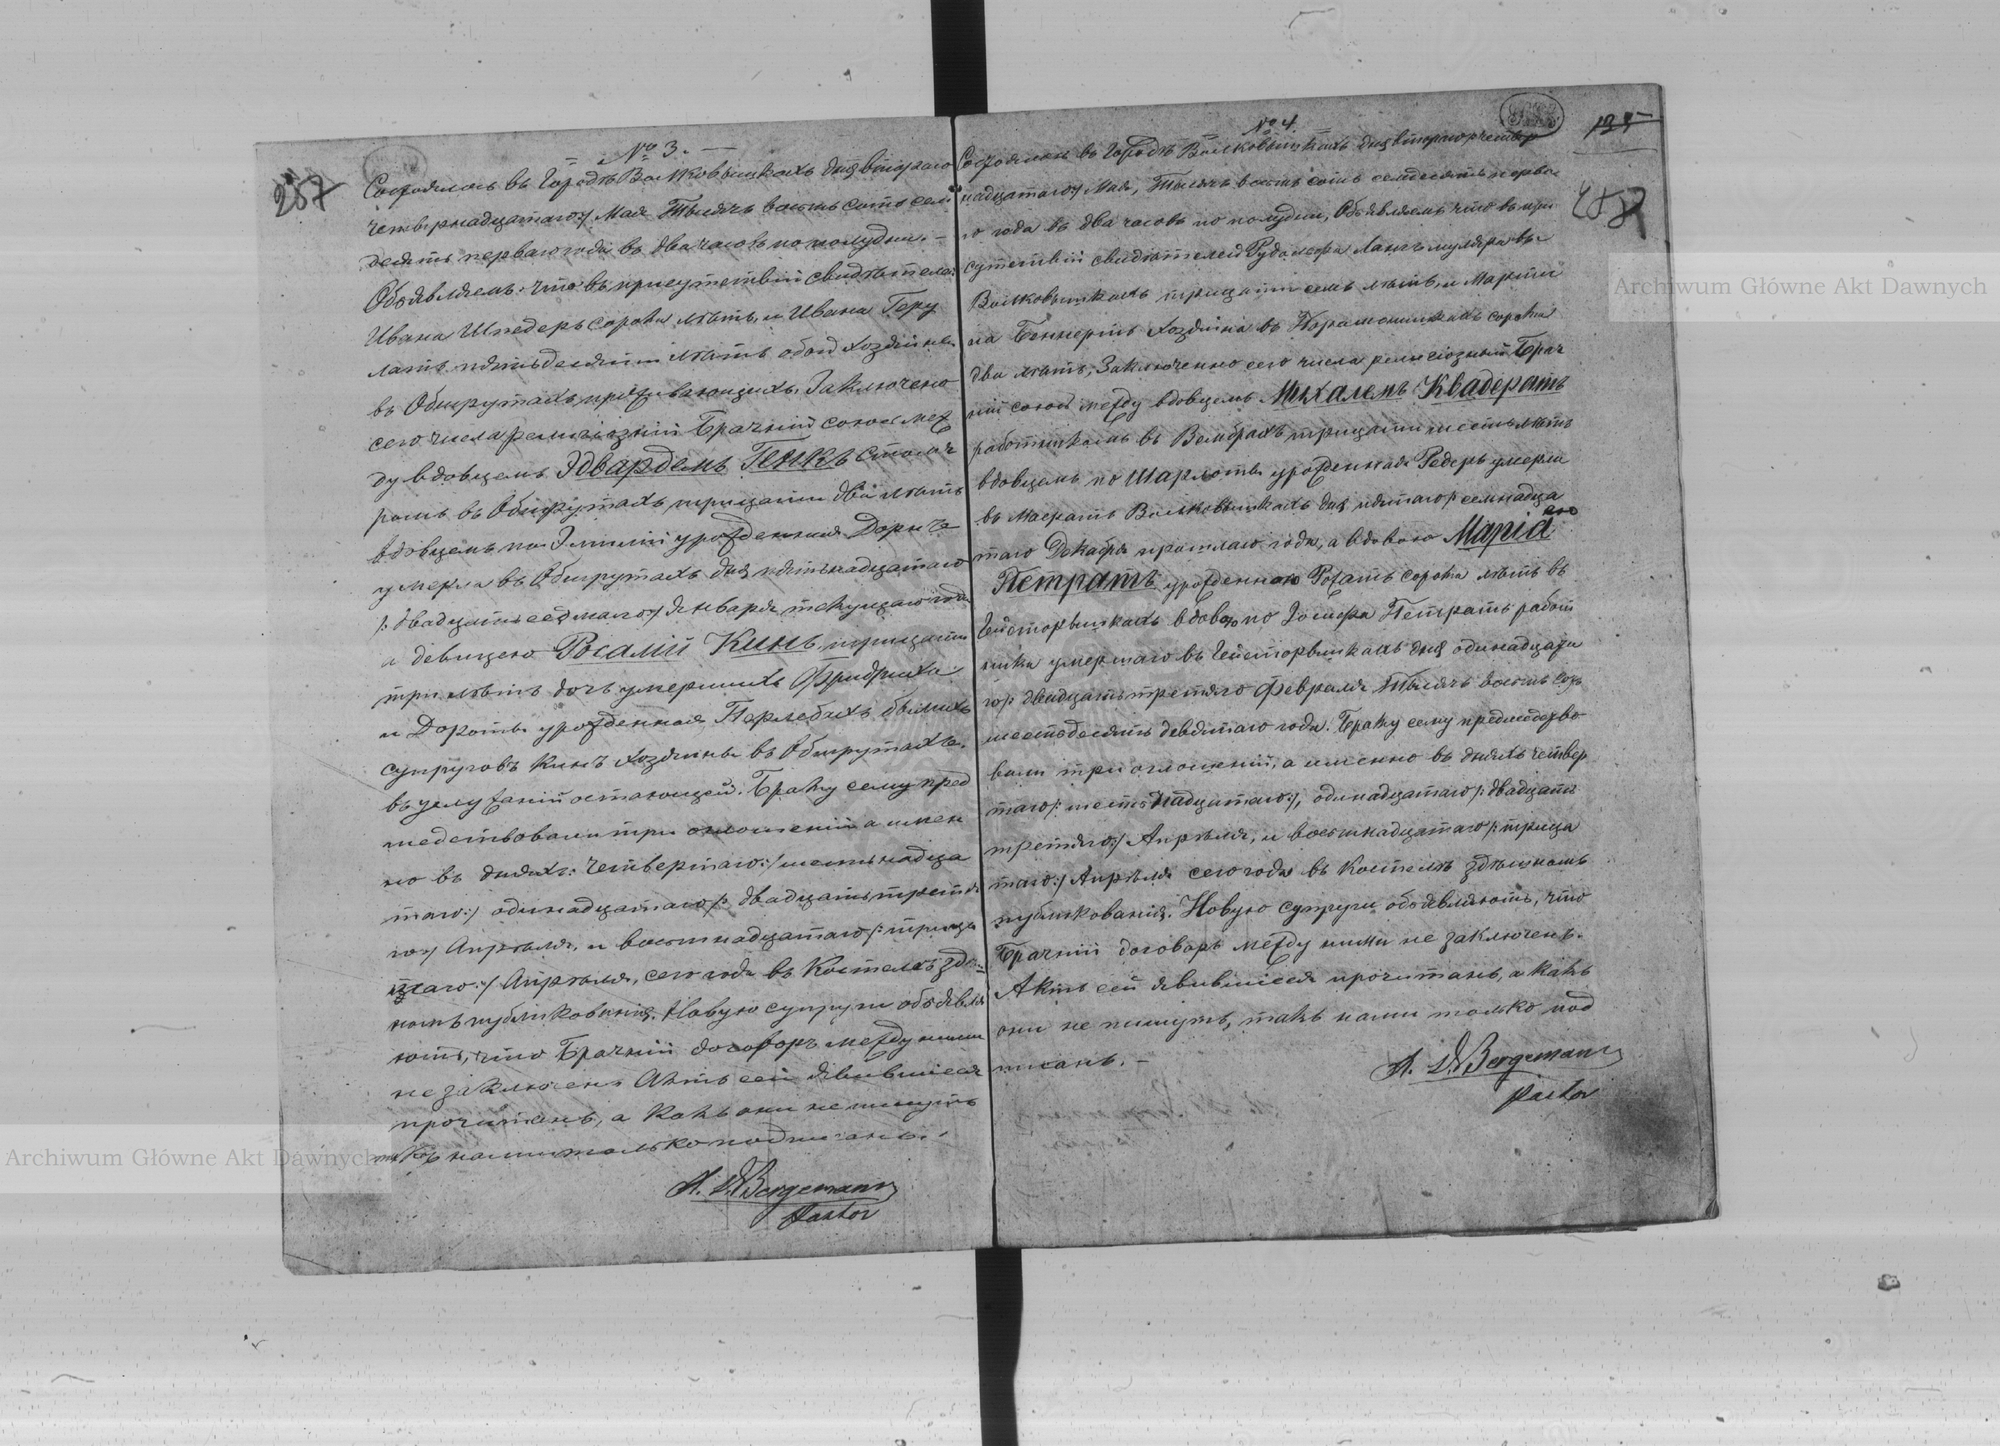 № 3.
257
Состоялось въ Городѣ Волковышкахъ дня втораго
четырнадцатаго:/ Мая Тысячь восемь сотъ сем
десятъ перваго года въ два часовъ по полудни. —
Объявляемъ: что въ присутствіи свидѣтелей
Ивана Шпедеръ сорока лѣтъ, и Ивана Геру
латъ пятьдесяти лѣтъ обои хозяины
въ Обшрутахъ проживающихъ, Заключено
сего числа религіозній Брачній союзъ меж
ду вдовцемъ Эдвардемъ Генкъ столя
ромъ въ Обшрутахъ трицати два лѣтъ
вдовцемъ по Эмиліи урожденная
умерла въ Обшрутахъ дня пятьнадцатаго
/: двадцать седмаго:/ Января текущаго года
а девицею Росалій Кинъ трицати
три лѣтъ дочь умершихъ Фридриха
и Дороты урожденная Перлебахъ бывшихъ
супруговъ Кинъ хозяины въ Обшрутахъ,
въ услуженіи остающей. Браку сему пред
шедствовали три оглошеній а имен
но въ дняхъ: четвертаго:/ шестьнадца
таго:/ одинадцатаго/: двадцать третя
го:/ Апрѣля, и восемнадцатаго/: трица
таго:/ Апрѣля, сего года въ Костелѣ здѣш
номъ публикованія. Новую супруги объявля
ютъ, что Брачній договоръ между ними
не заключенъ Актъ сей явившіеся
прочитанъ, а какъ они не пишутъ
такъ нами только подписанъ. —
A. L. Bergemann
Pastor
№ 4.
135
Состоялось въ Городѣ Волковышкахъ дня втораго/: четыр
надцатаго:/ Мая, Тысячь восемь сотъ семдесятъ перва
го года въ два часовъ по полудни, Объявляемъ что въ при
сутствіи свидѣтелей Рудольфа Лангъ муляра въ
Волковышкахъ трицати семь лѣтъ, и Марти
на Беннертъ хозяина въ сорока
два лѣтъ, Заключенно сего числа религіозный Брач
ній союзъ между вдовцемъ Михалемъ Квадератъ
работникомъ въ трицати шесть лѣтъ
вдовцемъ по Шарлоты урожденная Редеръ умерла
въ Волковышкахъ дня пятаго/: семнадца
таго Декабря прошлаго года, а вдовою Марія ею
Петратъ урожденною Рогатъ сорока лѣтъ въ
вдовою по Іосифа Петратъ работ
ника умершаго въ дня одинадцата
го/: двадцать третяго Февраля Тысячь восемь сотъ
шестьдесятъ девятаго года. Браку сему предшедство
вали три оглошеній, а именно въ дняхъ четвер
таго/: шестьнадцатаго:/, одинадцатаго/: двадцать
третяго:/ Апрѣля, и восемнадцатаго/: трица
таго:/ Апрѣля сего года въ Костелѣ здѣшномъ
публикованія. Новую супруги объявляютъ, что
Брачній договоръ между ними не заключенъ.
Актъ сей явившіеся прочитанъ, а какъ
они не пишутъ, такъ нами только под
писанъ. —
A. L. Bergemann
Pastor
Archiwum Główne Akt Dawnych
Archiwum Główne Akt Dawnych